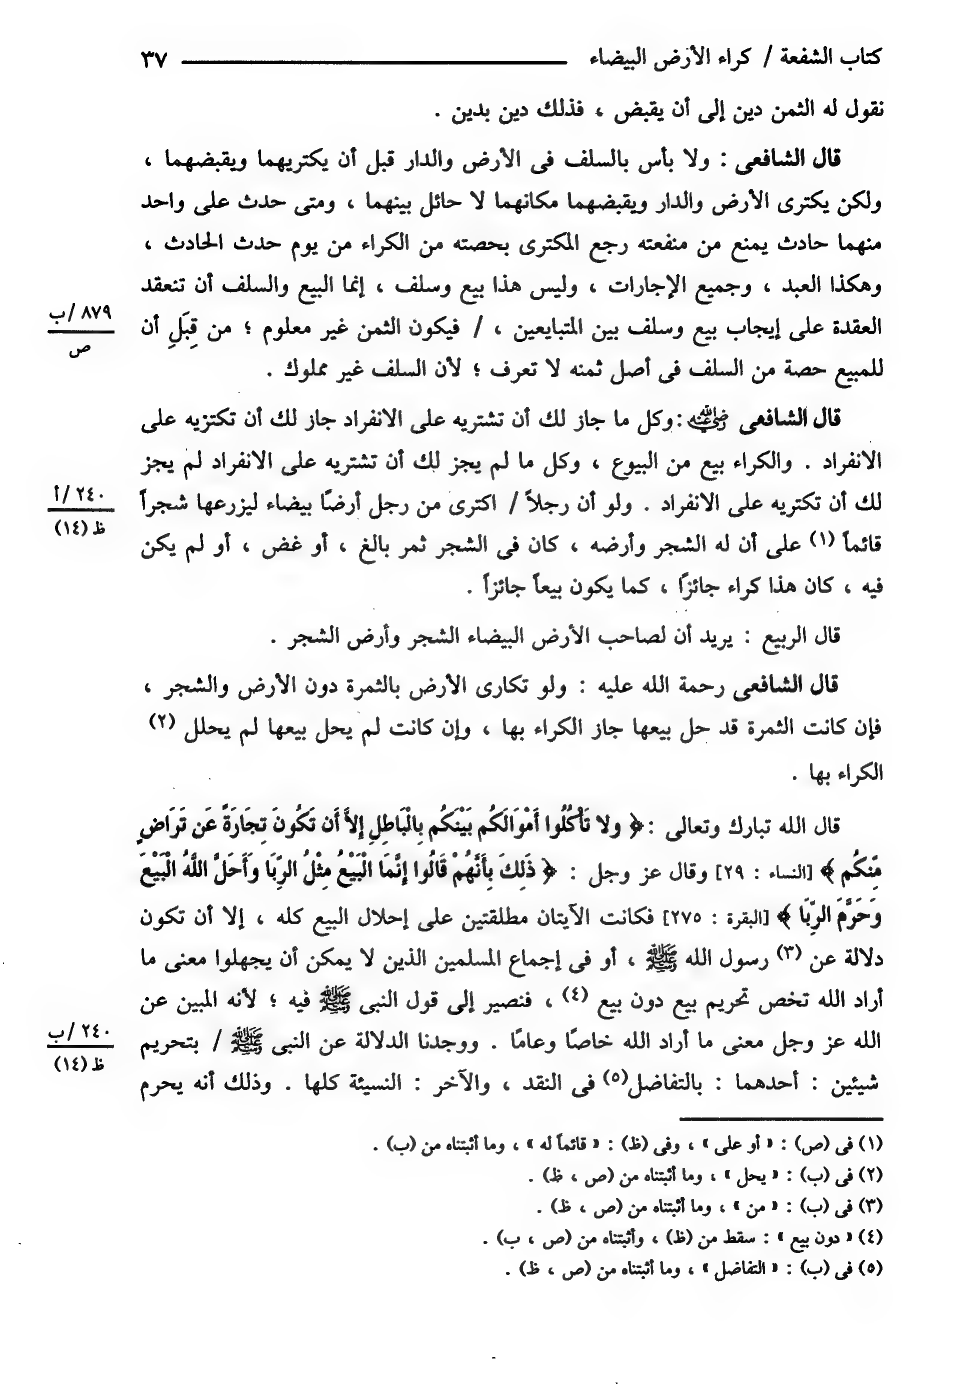 كتاب الشفعة / كراء الأرض البيضاء ٣٧
نقول له الثمن دين إلى أن يقبض ، فذلك دين بدين .
قال الشافعى : ولا بأس بالسلف فى الأرض والدار قبل أن يكتريهما ويقبضهما ،
ولكن يكترى الأرض والدار ويقبضهما مكانهما لا حائل بينهما ، ومتى حدث على واحد
منهما حادث يمنع من منفعته رجع المكترى بحصته من الكراء من يوم حدث الحادث ،
وهكذا العبد ، وجميع الإجارات ، وليس هذا بيع وسلف ، إنما البيع والسلف أن تنعقد
العقدة على إيجاب بيع وسلف بين المتبايعين ، / فيكون الثمن غير معلوم ؛ من قِبَلِ أن
٨٧٩ /ب
ص
للمبيع حصة من السلف فى أصل ثمنه لا تعرف ؛ لأن السلف غير مملوك .
قال الشافعى رضي الله عنه : وكل ما جاز لك أن تشتريه على الانفراد جاز لك أن تكتريه على
الانفراد . والكراء بيع من البيوع ، وكل ما لم يجز لك أن تشتريه على الانفراد لم يجز
لك أن تكتريه على الانفراد . ولو أن رجلاً / اكترى من رجل أرضًا بيضاء ليزرعها شجراً
٢٤٠ /أ
ظ (١٤)
قائماً (١) على أن له الشجر وأرضه ، كان فى الشجر ثمر بالغ ، أو غض ، أو لم يكن
فيه ، كان هذا كراء جائزًا ، كما يكون بيعاً جائزاً .
قال الربيع : يريد أن لصاحب الأرض البيضاء الشجر وأرض الشجر .
قال الشافعى رحمة الله عليه : ولو تكارى الأرض بالثمرة دون الأرض والشجر ،
فإن كانت الثمرة قد حل بيعها جاز الكراء بها ، وإن كانت لم يحل بيعها لم يحلل (٢)
الكراء بها .
قال الله تبارك وتعالى : ﴿ ولا تَأْكُلُوا أَمْوَالَكُم بَيْنَكُم بِالْبَاطِلِ إِلاَّ أَن تَكُونَ تِجَارَةً عَن تَرَاضٍ
مِّنكُم ﴾ [النساء : ٢٩] وقال عز وجل : ﴿ ذَلِكَ بِأَنَّهُمْ قَالُوا إِنَّمَا الْبَيْعُ مِثْلُ الرِّبَا وَأَحَلَّ اللَّهُ الْبَيْعَ
وَحَرَّمَ الرِّبَا ﴾ [البقرة : ٢٧٥] فكانت الآيتان مطلقتين على إحلال البيع كله ، إلا أن تكون
دلالة عن (٣) رسول الله ﷺ ، أو فى إجماع المسلمين الذين لا يمكن أن يجهلوا معنى ما
أراد الله تخص تحريم بيع دون بيع (٤) ، فنصير إلى قول النبى ﷺ فيه ؛ لأنه المبين عن
الله عز وجل معنى ما أراد الله خاصًا وعامًا . ووجدنا الدلالة عن النبى ﷺ / بتحريم
٢٤٠ /ب
ظ (١٤)
شيئين : أحدهما : بالتفاضل(٥) فى النقد ، والآخر : النسيئة كلها . وذلك أنه يحرم
(١) فى (ص) : « أو على » ، وفى (ظ) : « قائماً له » ، وما أثبتناه من (ب) .
(٢) فى (ب) : « يحل » ، وما أثبتناه من (ص ، ظ) .
(٣) فى (ب) : « من » ، وما أثبتناه من (ص ، ظ) .
(٤) « دون بيع » : سقط من (ظ) ، وأثبتناه من (ص ، ب) .
(٥) فى (ب) : « التفاضل » ، وما أثبتناه من (ص ، ظ) .